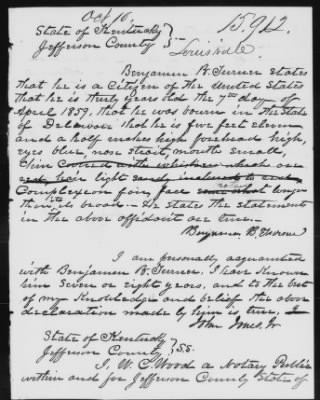 Oct 10.
15,942.
State of Kentucky
Jefferson County
Louisville.
Benjamin B. Turner states
that he is a Citizen of the United States
that he is thirty years old the 7th day of
April 1859, that he was bourn in the State
of Delaware that he is five feet eleven
and a half inches high, forehead high,
eyes blue, nose strait, mouth small,
Chin Covered with whiskers which are
red, hair light sandy inclined to red
Complexion fair, face some what longer
than its broad— He states the statements
in the above affidavit are true.—
Benjamin B. Turner
I am personaly acquainted
with Benjamin B. Turner. I have known
him Seven or eight years, and to the best
of my Knowledge and belief the above
declaration made by him is true,
John Jones, Jr
State of Kentucky
Jefferson County } S.S.
I, W. C. Wood a Notary Public
within and for Jefferson County State of